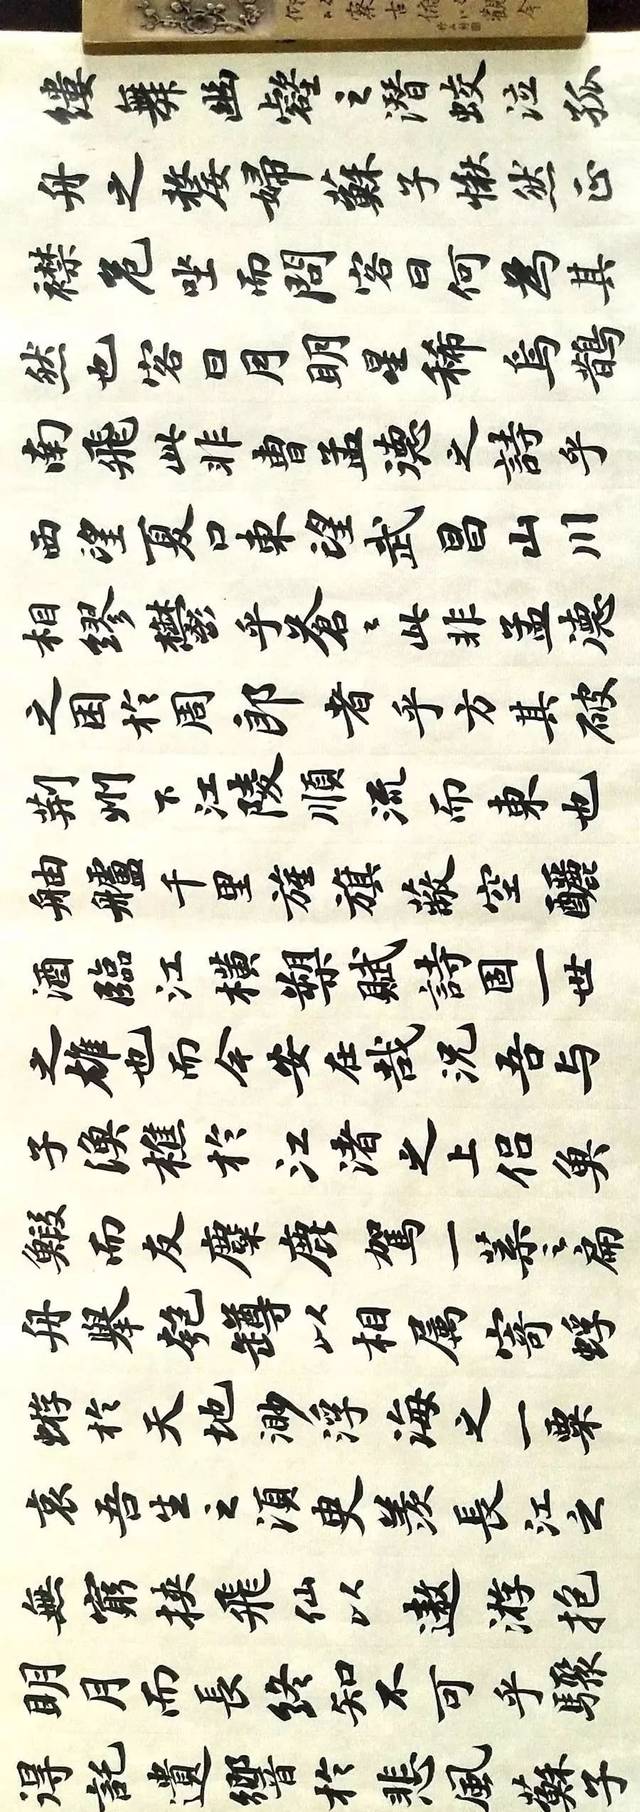 縷舞幽壑之潛蛟泣孤
舟之嫠婦蘇子愀然正
襟危坐而問客曰何為其
然也客曰月明星稀烏鵲
南飛此非曹孟德之詩乎
西望夏口東望武昌山川
相繆鬱乎蒼〻此非孟德
之困於周郎者乎方其破
荆州下江陵順流而東也
舳艫千里旌旗蔽空釃
酒臨江橫槊賦詩固一世
之雄也而今安在哉況吾与
子漁樵於江渚之上侶魚
鰕而友麋鹿駕一葉之扁
舟舉匏罇以相属寄蜉
蝣於天地渺浮海之一粟
哀吾生之須臾羨長江之
無窮挾飛仙以遨游抱
明月而長終知不可乎驟
得託遺響於悲風蘇子